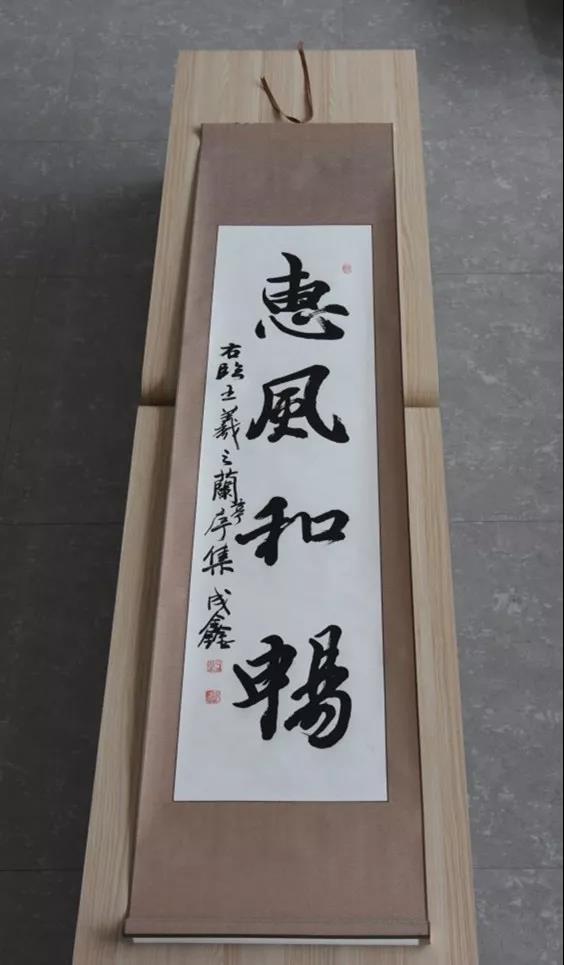 惠風和暢
右臨王羲之蘭亭序集成鑫